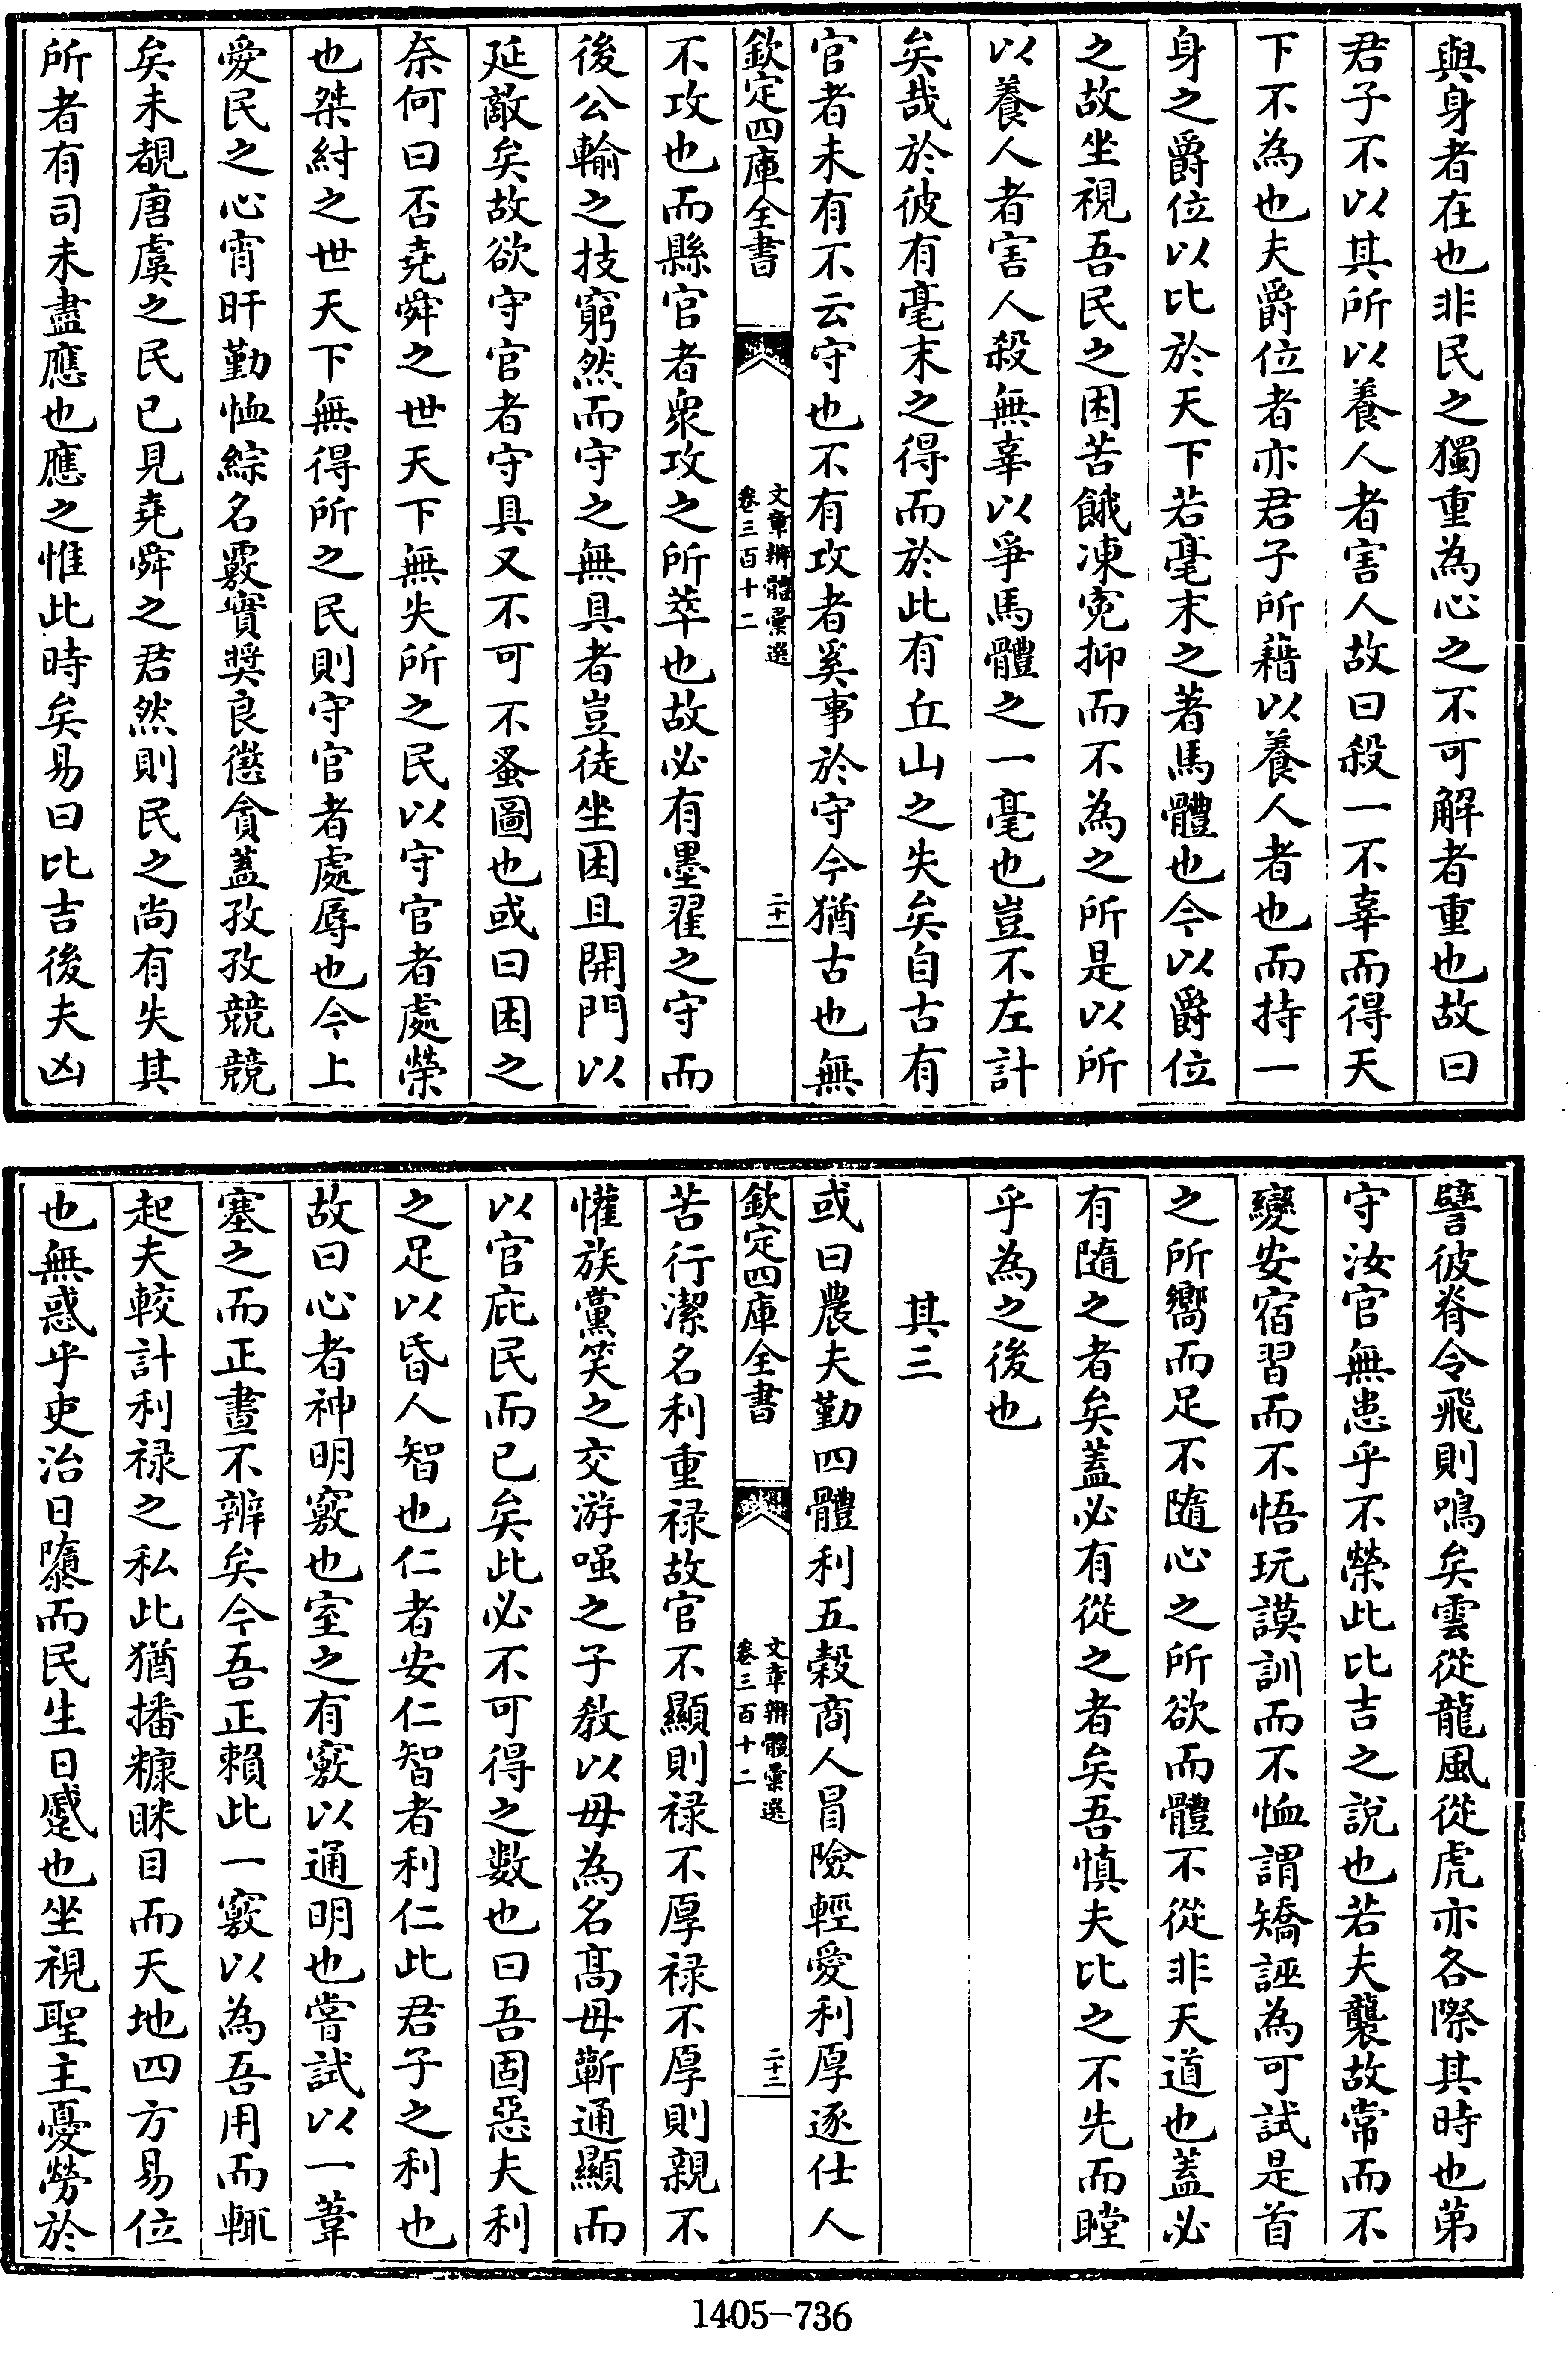 與身者在也非民之獨重為心之不可解者重也故曰
君子不以其所以養人者害人故曰殺一不辜而得天
下不為也夫爵位者亦君子所藉以養人者也而持一
身之爵位以比於天下若毫末之著馬體也今以爵位
之故坐視吾民之困苦餓凍寃抑而不為之所是以所
以養人者害人殺無辜以爭馬體之一毫也豈不左計
矣哉於彼有毫末之得而於此有丘山之失矣自古有
官者未有不云守也不有攻者奚事於守今猶古也無
欽定四庫全書
文章辨體彙選
卷三百十二
二十一
不攻也而縣官者衆攻之所萃也故必有墨翟之守而
後公輸之技窮然而守之無具者豈徒坐困且開門以
延敵矣故欲守官者守具又不可不蚤圖也或曰困之
奈何曰否堯舜之世天下無失所之民以守官者處榮
也桀紂之世天下無得所之民則守官者處辱也今上
愛民之心宵旰勤恤綜名覈實奬良懲貪蓋孜孜競競
矣未覩唐虞之民已見堯舜之君然則民之尚有失其
所者有司未盡應也應之惟此時矣易曰比吉後夫凶
譬彼脊令飛則鳴矣雲從龍風從虎亦各際其時也第
守汝官無患乎不榮此比吉之說也若夫襲故常而不
變安宿習而不悟玩謨訓而不恤謂矯誣為可試是首
之所嚮而足不隨心之所欲而體不從非天道也蓋必
有隨之者矣蓋必有從之者矣吾慎夫比之不先而瞠
乎為之後也
其三
或曰農夫勤四體利五穀商人冒險輕愛利厚逐仕人
欽定四庫全書
文章辨體彙選
卷三百十二
二十二
苦行潔名利重禄故官不顯則禄不厚禄不厚則親不
懽族黨笑之交游嗤之子教以毋為名髙毋蘄通顯而
以官庇民而已矣此必不可得之数也曰吾固惡夫利
之足以昏人智也仁者安仁智者利仁此君子之利也
故曰心者神明竅也室之有竅以通明也嘗試以一葦
塞之而正晝不辨矣今吾正賴此一竅以為吾用而輒
起夫較計利禄之私此猶播糠眯目而天地四方易位
也無惑乎吏治日隳而民生日蹙也坐視聖主憂勞於
1405-736